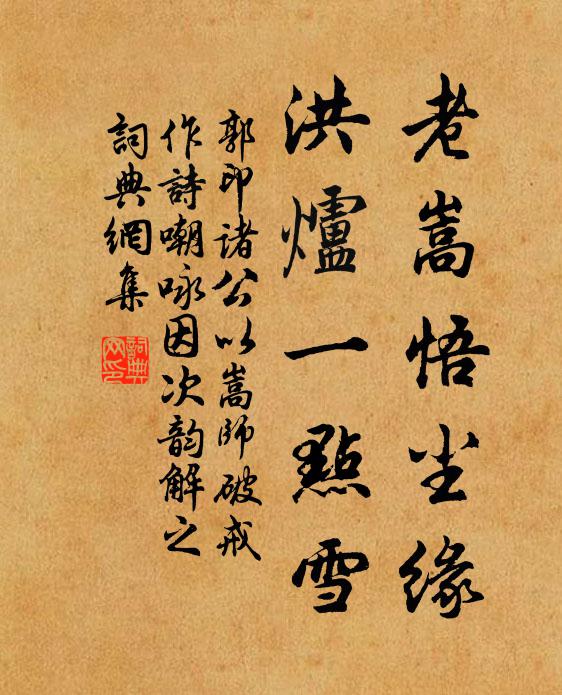 老嵩悟尘緣
洪爐一點雪
郭印諸公以嵩師破戒
作詩嘲咏因次韵解之
詞典網集
詞典
网印